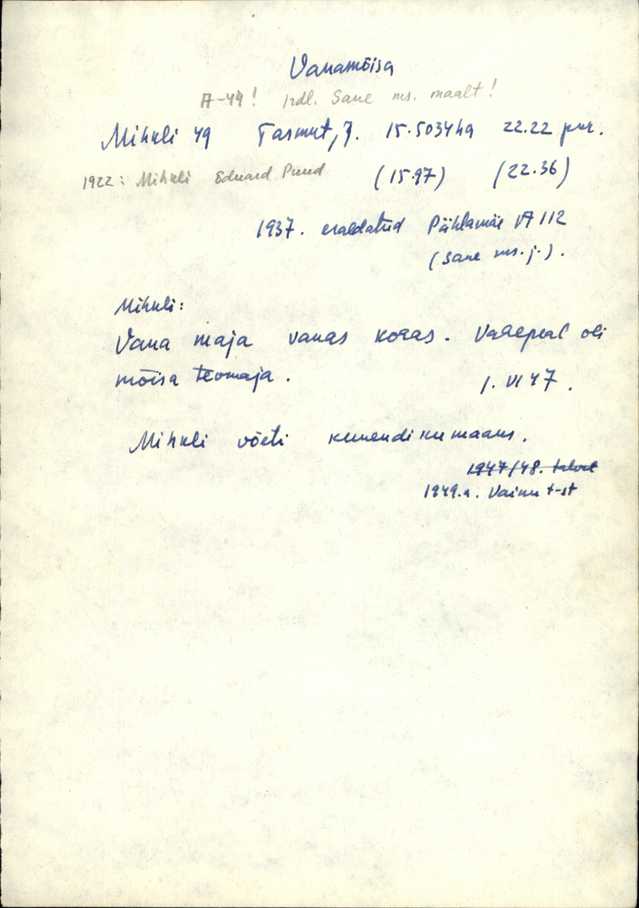 Vanamõisa
A-49! Sane ms. maalt!
Mihkli 49 Tasmut, J. 15.5034ha 22.22 pur.
1922: Mihkli Eduard Puud (15.97) (22.36)
1937. eraldatud Pihlamäe A112
(Sane ms. j.).
Mihkli:
Vana maja vanas kohas. Vahepeal oli
mõisa teomaja. 1. VI 47.
Mihkli võeti kunendikumaaks.
1947/48. talvel
1949.a. Vainu t-st